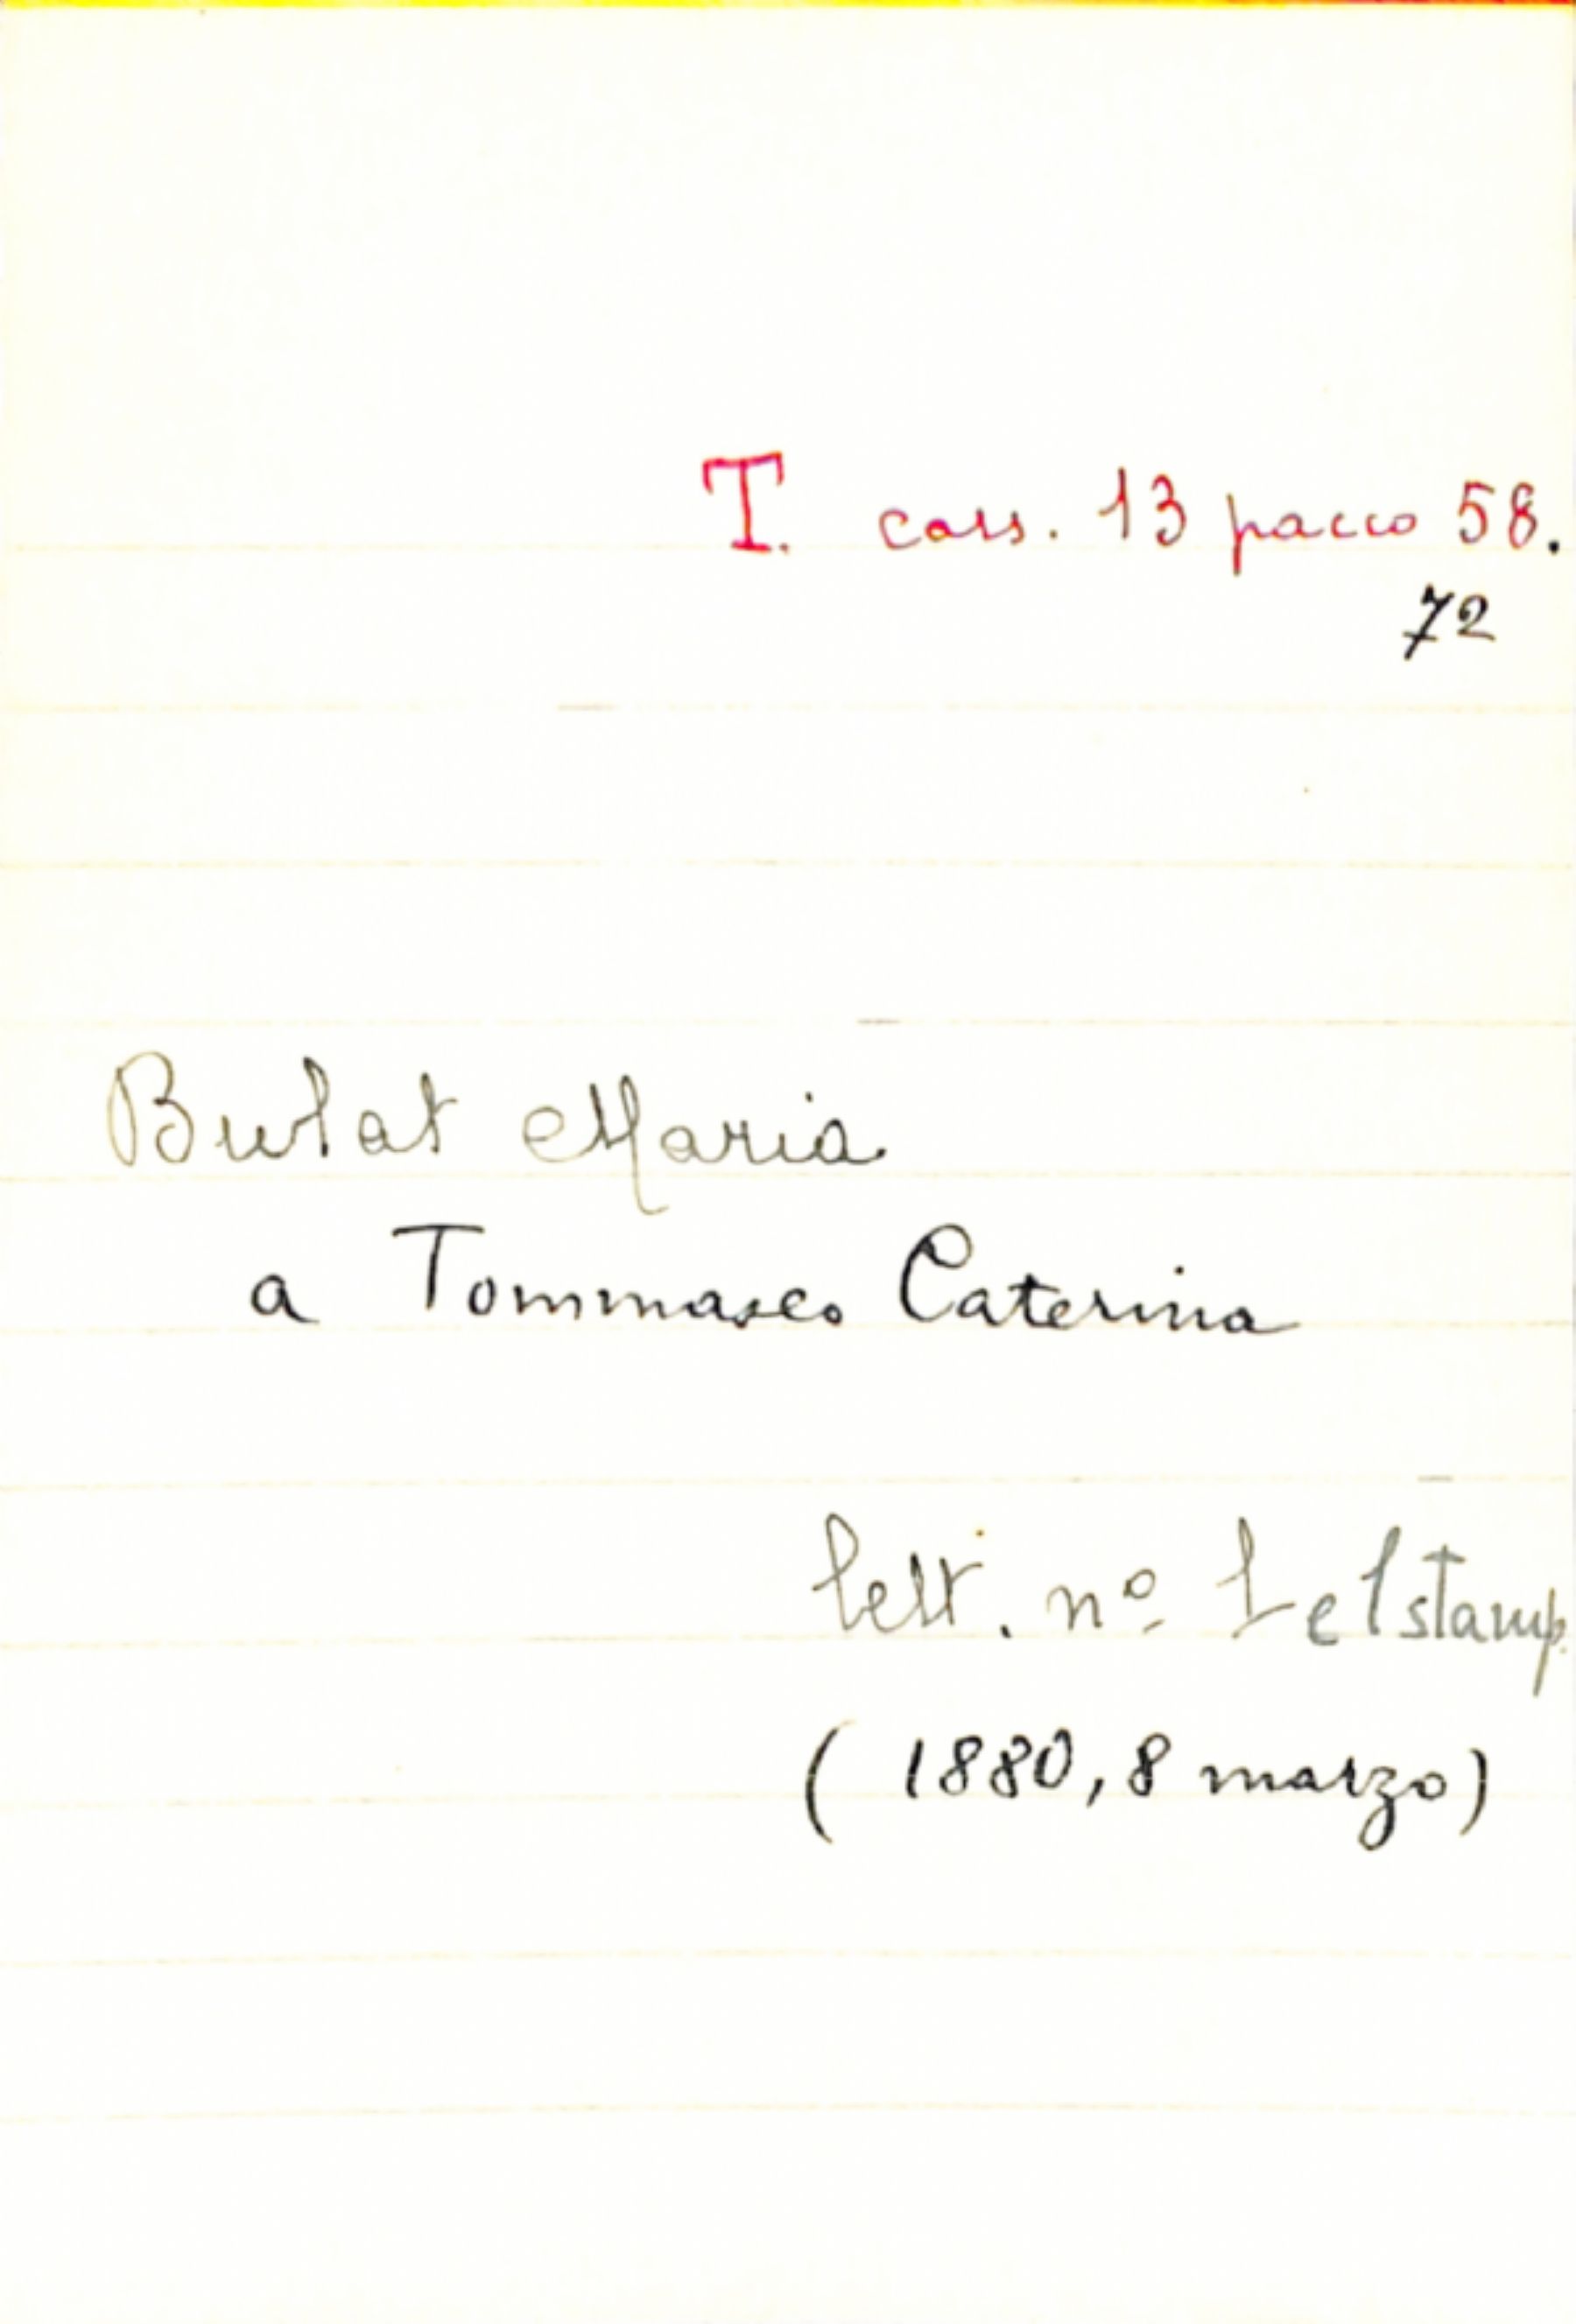 T. cass. 13 pacco 58.
72
Bulat Maria
a Tommaseo Caterina
lett. nº 1 e 1 stamp.
(1880, 8 marzo)